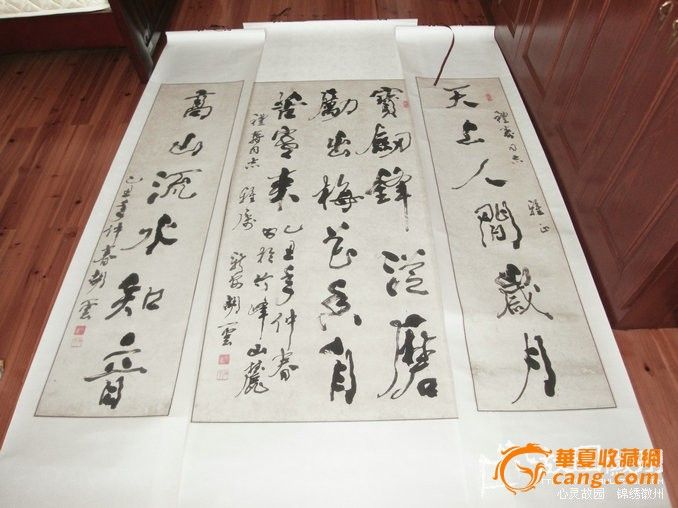 天上人間歲月
同志 雅正
寶劍鋒從磨
勵出梅花香自
苦寒來
己丑年仲春
書於竹峰山麓
同志 雅屬 新安胡雲
高山流水知音
己丑年仲春胡雲
華夏收藏網
cang.com
心灵故园 锦绣徽州